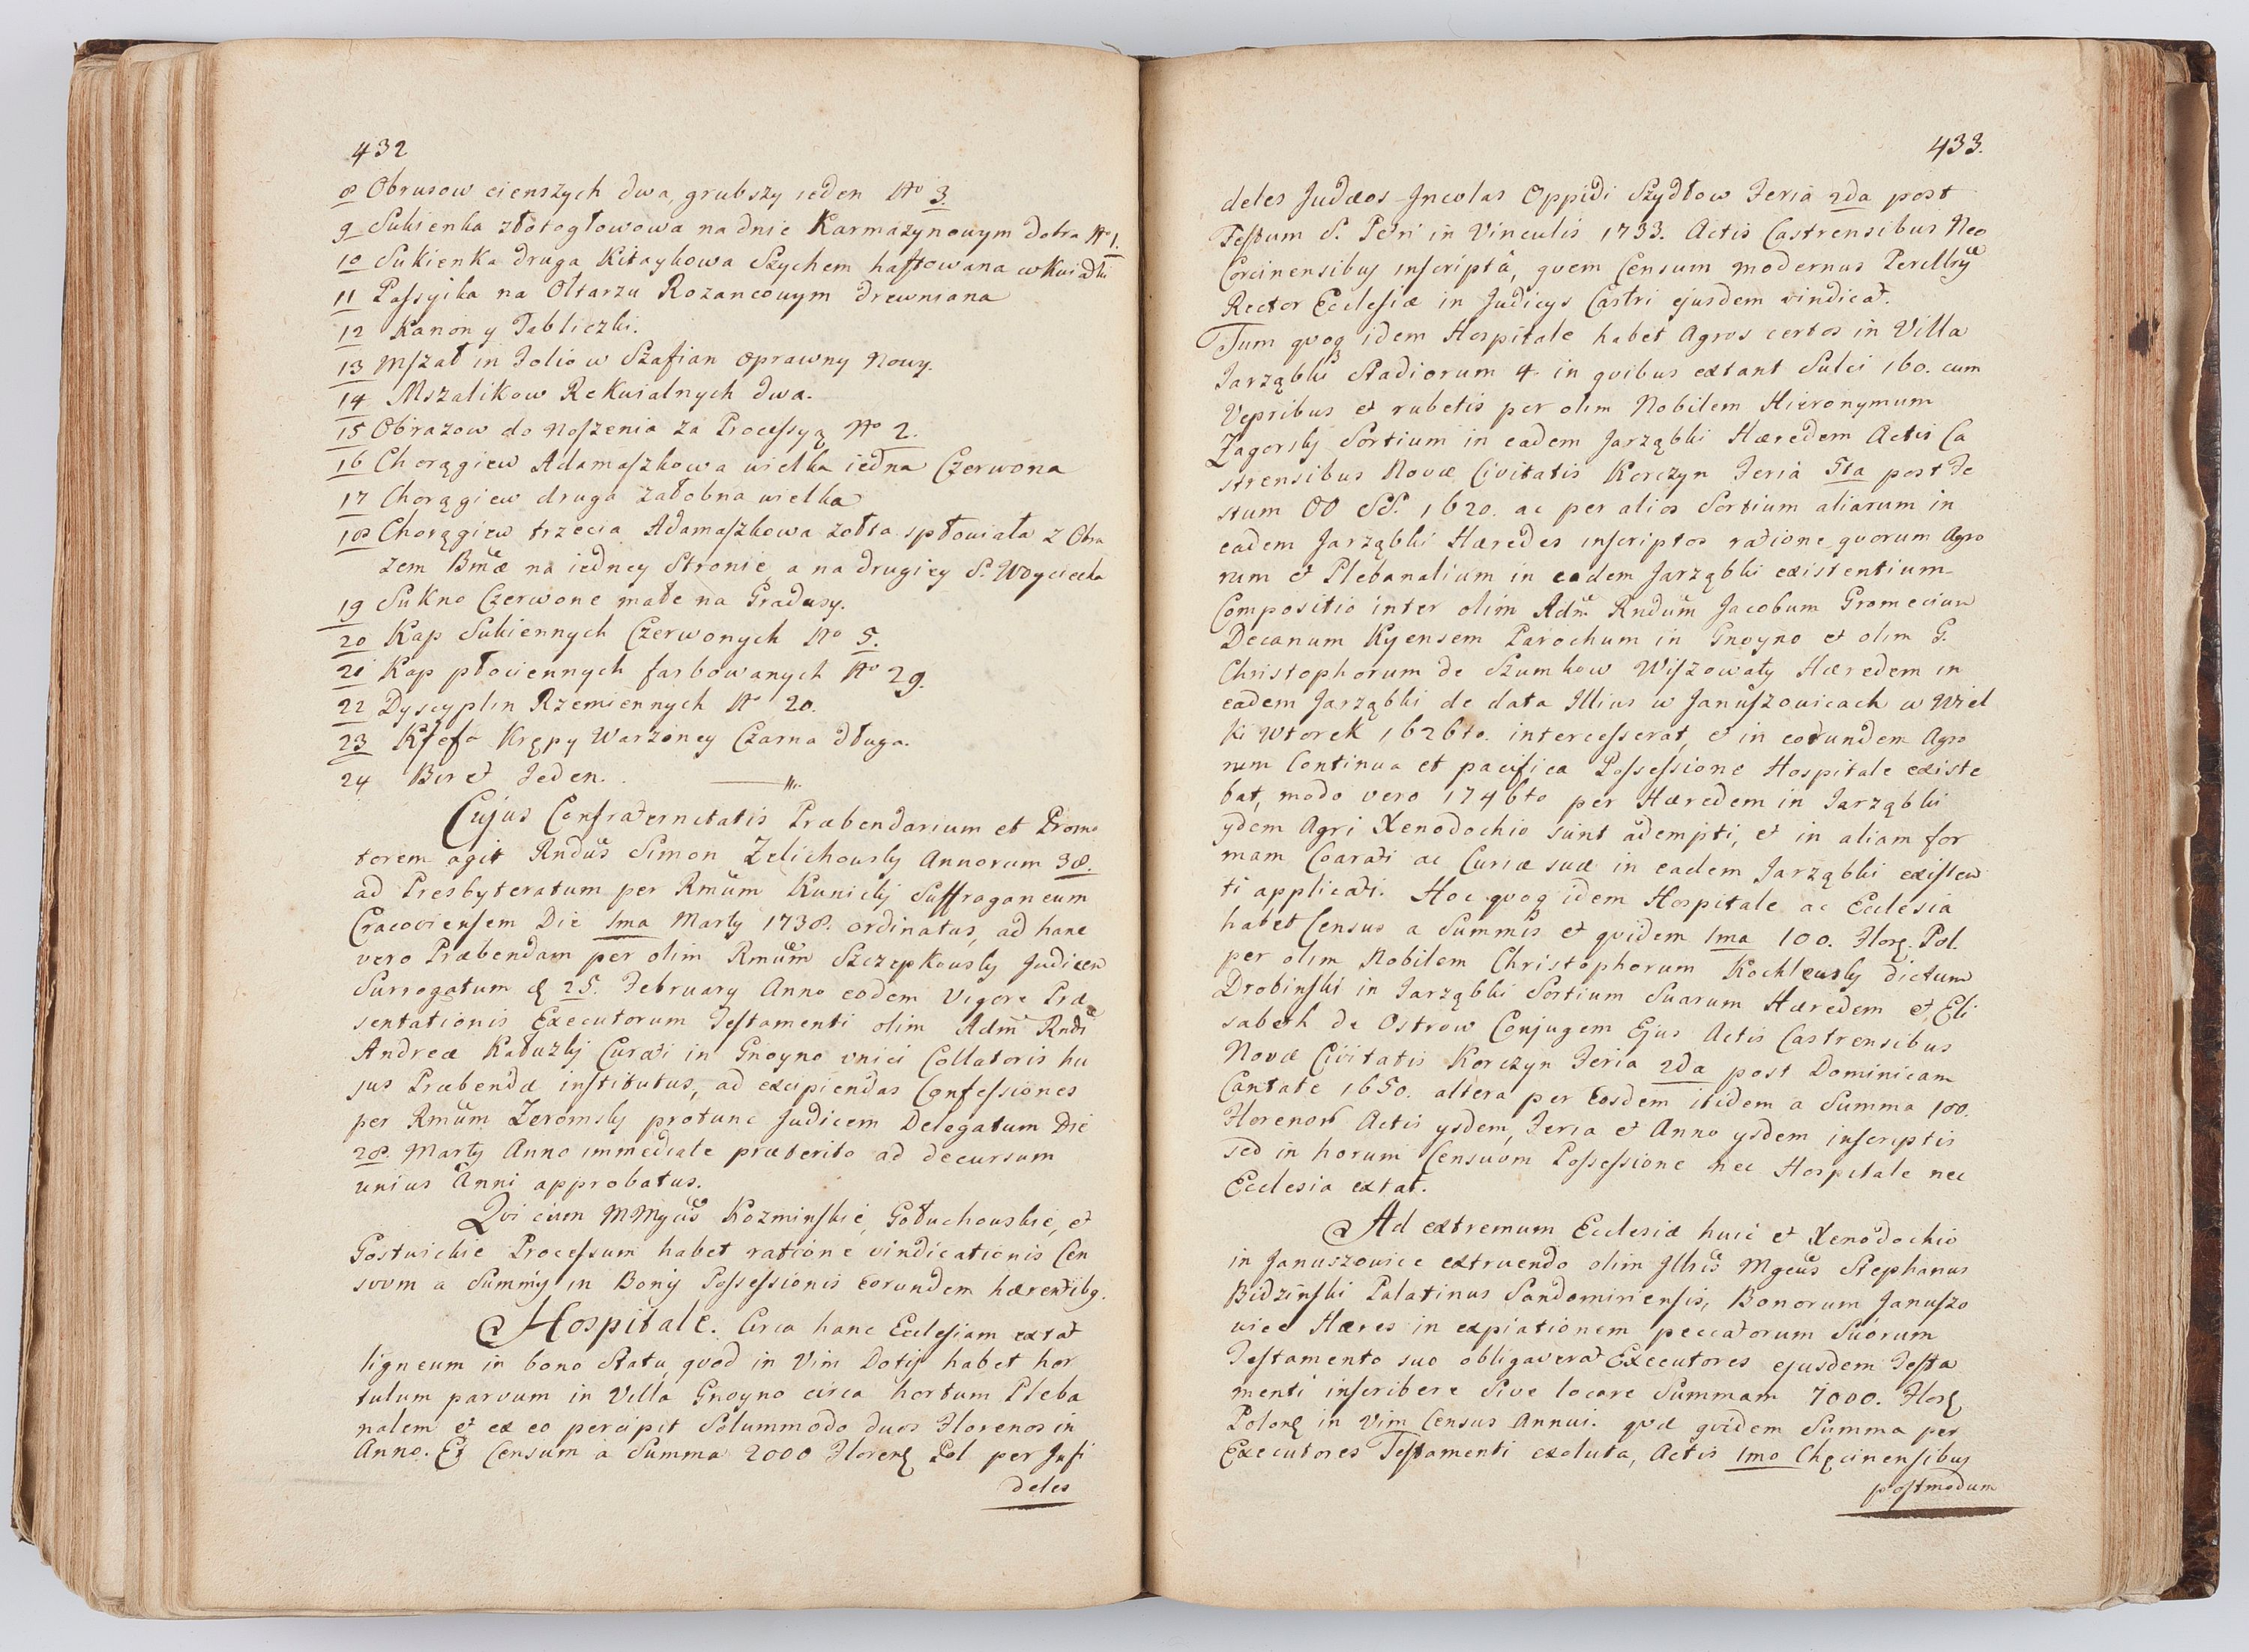 432
8 Obrusow cienszych dwa, grubszy ieden No 3.
9 Sukienka złotogłowowa na dnie Karmazynowym dobra No 1.
10 Sukienka druga Kitaykowa Szychem haftowana w kwiatki
11 Passyika na Ołtarzu Rozancowym drewniana
12 Kanon y Tabliczki.
13 Mszał in Folio w Szafian oprawny Nowy.
14 Mszalikow Rekwialnych dwa.
15 Obrazow do noszenia za Processyą No 2.
16 Chorągiew Adamaszkowa wielka iedna Czerwona
17 Chorągiew druga załobna wielka
18 Chorągiew trzecia Adamaszkowa zołta spłowiała z Obra
zem Bmæ na iedney Stronie a na drugiey S. Woyciecha
19 Sukno Czerwone małe na Gradusy.
20 Kap Sukiennych Czerwonych No 5.
21 Kap płociennych farbowanych No 29.
22 Dyscyplin Rzemiennych No 20.
23 Krępy Warzoney Czarna długa.
24 Biret Jeden.
Cujus Confraternitatis Præbendarium et Promo
torem agit Rndus Simon Zelichowsky Annorum 38.
ad Presbyteratum per Rmum Kunicky Suffraganeum
Cracoviensem Die 1ma Marty 1738. ordinatus, ad hanc
vero Præbendam per olim Rmum Szczepkowsky Judicem
Surrogatum 25. February Anno eodem Vigore Præ
sentationis Executorum Testamenti olim Adm Rndi
Andreæ Kałuzky Curati in Gnoyno unici Collatoris hu
jus Præbendæ institutus, ad excipiendas Confessiones
per Rmum Zeromsky protunc Judicem Delegatum Die
28. Marty Anno immediate præterito ad decursum
unius Anni approbatus.
Qui cum MMgcis Kozminskie, Gołuchowskie, et
Gostwickie Processum habet ratione vindicationis Cen
suum a Summis in Bonis Possessionis eorundem hærentibg.
Hospitale. Circa hanc Ecclesiam extat
ligneum in bono Statu, quod in Vim Dotis habet hor
tulum parvum in Villa Gnoyno circa hortum Pleba
nalem et ex eo percipit Solummodo duos Florenos in
Anno. Et Censum a Summa 2000 Floren Pol per Infi
deles
433.
deles Judæos Incolas Oppidi Szydłow Feria 2da post
Festum S. Petri in Vinculis 1733. Actis Castrensibus Neo
Corcinensibus inscriptâ, quem Censum modernus Perillris
Rector Ecclesiæ in Judicys Castri ejusdem vindicat.
Tum quoq idem Hospitale habet Agros certos in Villa
Jarząbki Stadiorum 4. in quibus extant Sulci 160. cum
Vepribus et rubetis per olim Nobilem Hieronymum
Zagorsky Sortium in eadem Jarząbki Hæredem Actis Ca
strensibus Novæ Civitatis Korczyn Feria 5ta post Fe
stum OO SS. 1620. ac per alios Sortium aliarum in
eadem Jarząbki Hæredes inscriptos ratione quorum Agro
rum et Plebanalium in eadem Jarząbki existentium
Compositio inter olim Adm Rndum Jacobum Gromecium
Decanum Kyensem Parochum in Gnoyno et olim G.
Christophorum de Szumkow Wiszowaty Hæredem in
eadem Jarząbki de data Illius w Januszowicach w Wiel
ki Wtorek 1626to. intercesserat, et in eorundem Agro
rum Continua et pacifica Possessione Hospitale existe
bat, modo vero 1746to per Hæredem in Jarząbki
ydem Agri Xenodochio sunt adempti, et in aliam for
mam Coarati ac Curiæ suæ in eadem Jarząbki existen
ti applicati. Hoc quoq idem Hospitale ac Ecclesia
habet Census a Summis et quidem 1ma 100. Flor. Pol.
per olim Nobilem Christophorum Kochlewsky dictum
Drobinski in Jarząbki Sortium Suarum Hæredem et Eli
sabeth de Ostrow Conjugem Ejus Actis Castrensibus
Novæ Civitatis Korczyn Feria 2da post Dominicam
Cantate 1650. altera per Eosdem itidem a Summa 100.
Florenor Actis ysdem, Feria et Anno ysdem inscriptis
sed in horum Censuum Possessione nec Hospitale nec
Ecclesia extat.
Ad extremum Ecclesiæ huic et Xenodochio
in Januszowice extruendo olim Illris Mgcus Stephanus
Bidzinski Palatinus Sandomiriensis, Bonorum Januszo
wice Hæres in expiationem peccatorum Suorum
Testamento suo obligaverat Executores ejusdem Testa
menti inscribere Sive locare Summam 7000. Flor
Polon in Vim Census Annui. quæ quidem Summa per
Executores Testamenti exoluta, Actis 1mo Chęcinensibus
postmodum